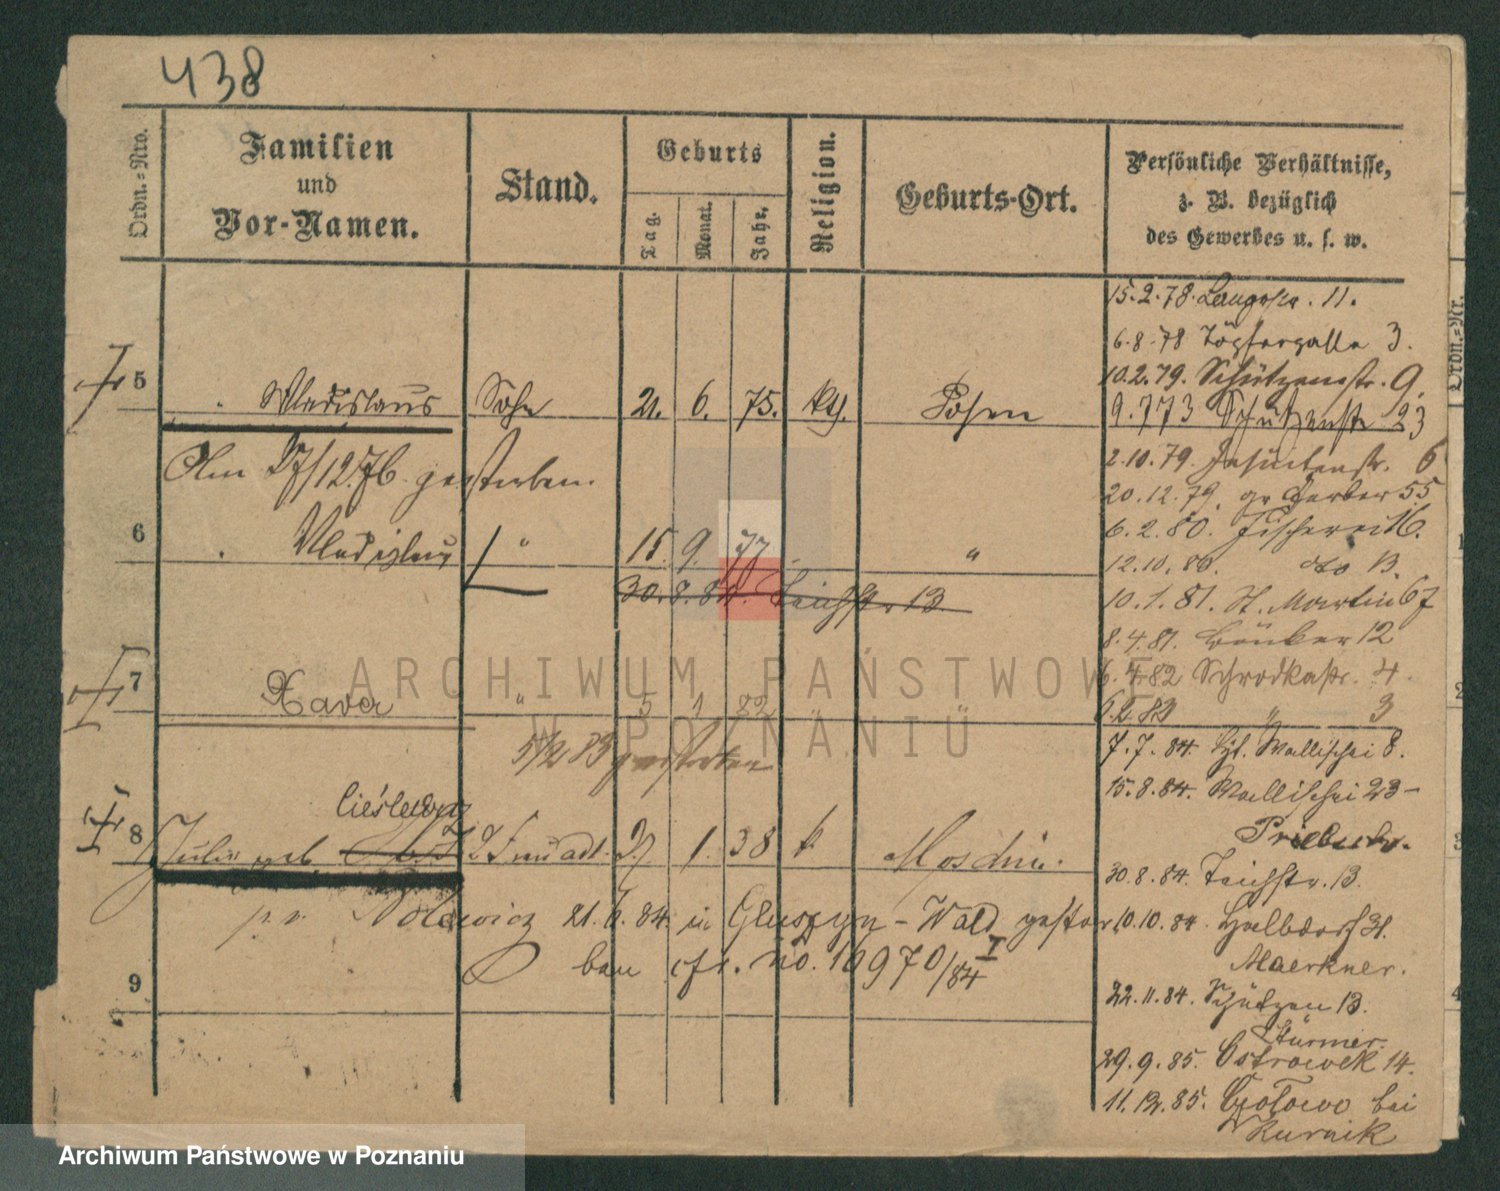 438
Ordn.=Nro.
Familien
und
Vor-Namen.
Stand.
Geburts
Tag.
Monat.
Jahr.
Religion.
Geburts-Ort.
Persönliche Verhältnisse,
z. B. bezüglich
des Gewerbes u. s. w.
15.2.78. Langestr. 11.
6.8.78 Töpfergasse 3.
10.2.79. Schützenstr. 9.
5 Wladislaus Sohn 21. 6. 75. kth. Posen
9.7.73 Schützenstr 23
Am 27/12.76. gestorben.
2.10.79. Jesuitenstr. 6
20.12.79. gr Gerber 55
6 Wladislaus " 15. 9. 77 "
6.2.80. Fischerei 16.
12.10.80. do 13.
30.8.84. Teichstr 13
10.1.81. St. Martin 67
8.4.81. Bäcker 12
7 Xaver " 5 1 82
6.4.82 Schrodkastr. 4.
6.2.83 " 3
5/2 83 gestorben
7.7.84. Wallischei 8.
15.8.84. Wallischei 23 –
Cieślewicz
8 Julie geb. 27 1. 38 k. Moschin.
Priebsch.
30.8.84. Teichstr. 13.
p. v. 21.6.84 in Gluszyn – Wald gestor
10.10.84. Halbdorf 31.
ben cfr. No. 10970/84 I
Maerkner.
9
22.11.84. Schützen 13.
Stürmer.
29.9.85. Ostrowek 14.
11.12.85. bei
Kurnik
Ordn.=Nr.
1
2
3
4
ARCHIWUM PAŃSTWOWE
W POZNANIU
Archiwum Państwowe w Poznaniu